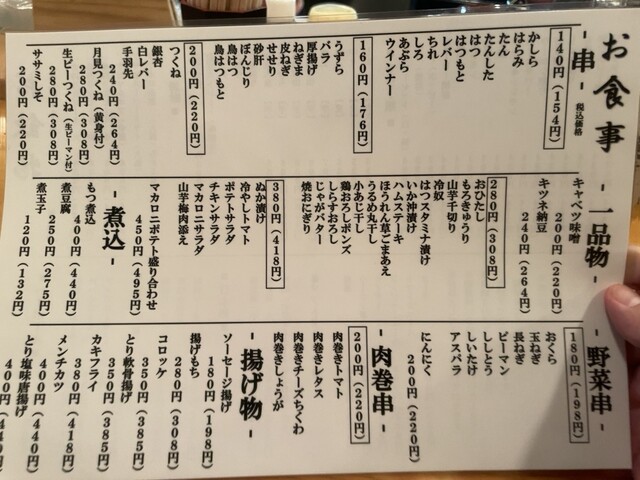 お食事
- 串 -
税込価格
140円（154円）
かしら
はらみ
たん
たんした
はつ
はつもと
レバー
ちれ
しろ
あぶら
ウインナー
160円（176円）
うずら
バラ
厚揚げ
ねぎま
皮ねぎ
せせり
砂肝
ぼんじり
鳥はつ
鳥はつもと
200円（220円）
つくね
銀杏
白レバー
手羽先
240円（264円）
月見つくね（黄身付）
280円（308円）
生ピーつくね（生ピーマン付）
280円（308円）
ササミしそ
200円（220円）
- 一品物 -
キャベツ味噌
200円（220円）
キツネ納豆
240円（264円）
280円（308円）
おひたし
もろきゅうり
山芋千切り
冷奴
はつスタミナ漬け
いか沖漬け
ハムステーキ
ほうれん草ごまあえ
うるめ丸干し
小あじ干し
鶏おろしポンズ
しらすおろし
じゃがバター
焼おにぎり
380円（418円）
ぬか漬け
冷やしトマト
ポテトサラダ
チキンサラダ
マカロニサラダ
山芋梅肉添え
マカロニポテト盛り合わせ
450円（495円）
- 煮込 -
もつ煮込
400円（440円）
煮豆腐
250円（275円）
煮玉子
120円（132円）
- 野菜串 -
180円（198円）
おくら
玉ねぎ
長ねぎ
ピーマン
ししとう
しいたけ
アスパラ
にんにく
200円（220円）
- 肉巻串 -
200円（220円）
肉巻きトマト
肉巻きレタス
肉巻きチーズちくわ
肉巻きしょうが
- 揚げ物 -
ソーセージ揚げ
180円（198円）
揚げもち
280円（308円）
コロッケ
350円（385円）
とり軟骨揚げ
350円（385円）
カキフライ
380円（418円）
メンチカツ
400円（440円）
とり塩味唐揚げ
400円（440円）